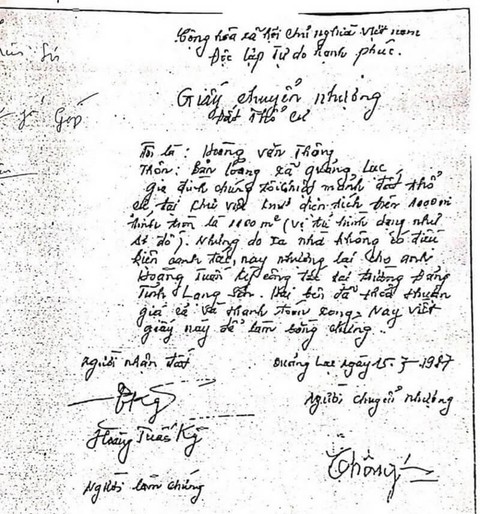 Cộng hòa xã hội chủ nghĩa Việt nam
Độc lập Tự do hạnh phúc.
Giấy chuyển nhượng
Đất thổ cư
Tôi là: Hoàng văn Thông
Thôn: Bản loỏng xã quảng Lạc
gia đình chúng tôi có mảnh đất thổ
cư tại khu vực diện tích trên 1000m
hình tròn là 1100 m² (vị trí hình dạng như
sơ đồ). Nhưng do xa nhà không có điều
kiện canh tác, nay nhường lại cho anh
Hoàng Tuấn Kỳ công tác tại trường Đảng
Tỉnh Lạng Sơn. Hai bên đã thỏa thuận
giá cả và thanh toán xong. Nay viết
giấy này để làm bằng chứng.
người nhận đất
Quảng Lạc ngày 15-7-1987
Người chuyển nhượng
Hoàng Tuấn Kỳ
Thông
Người làm chứng